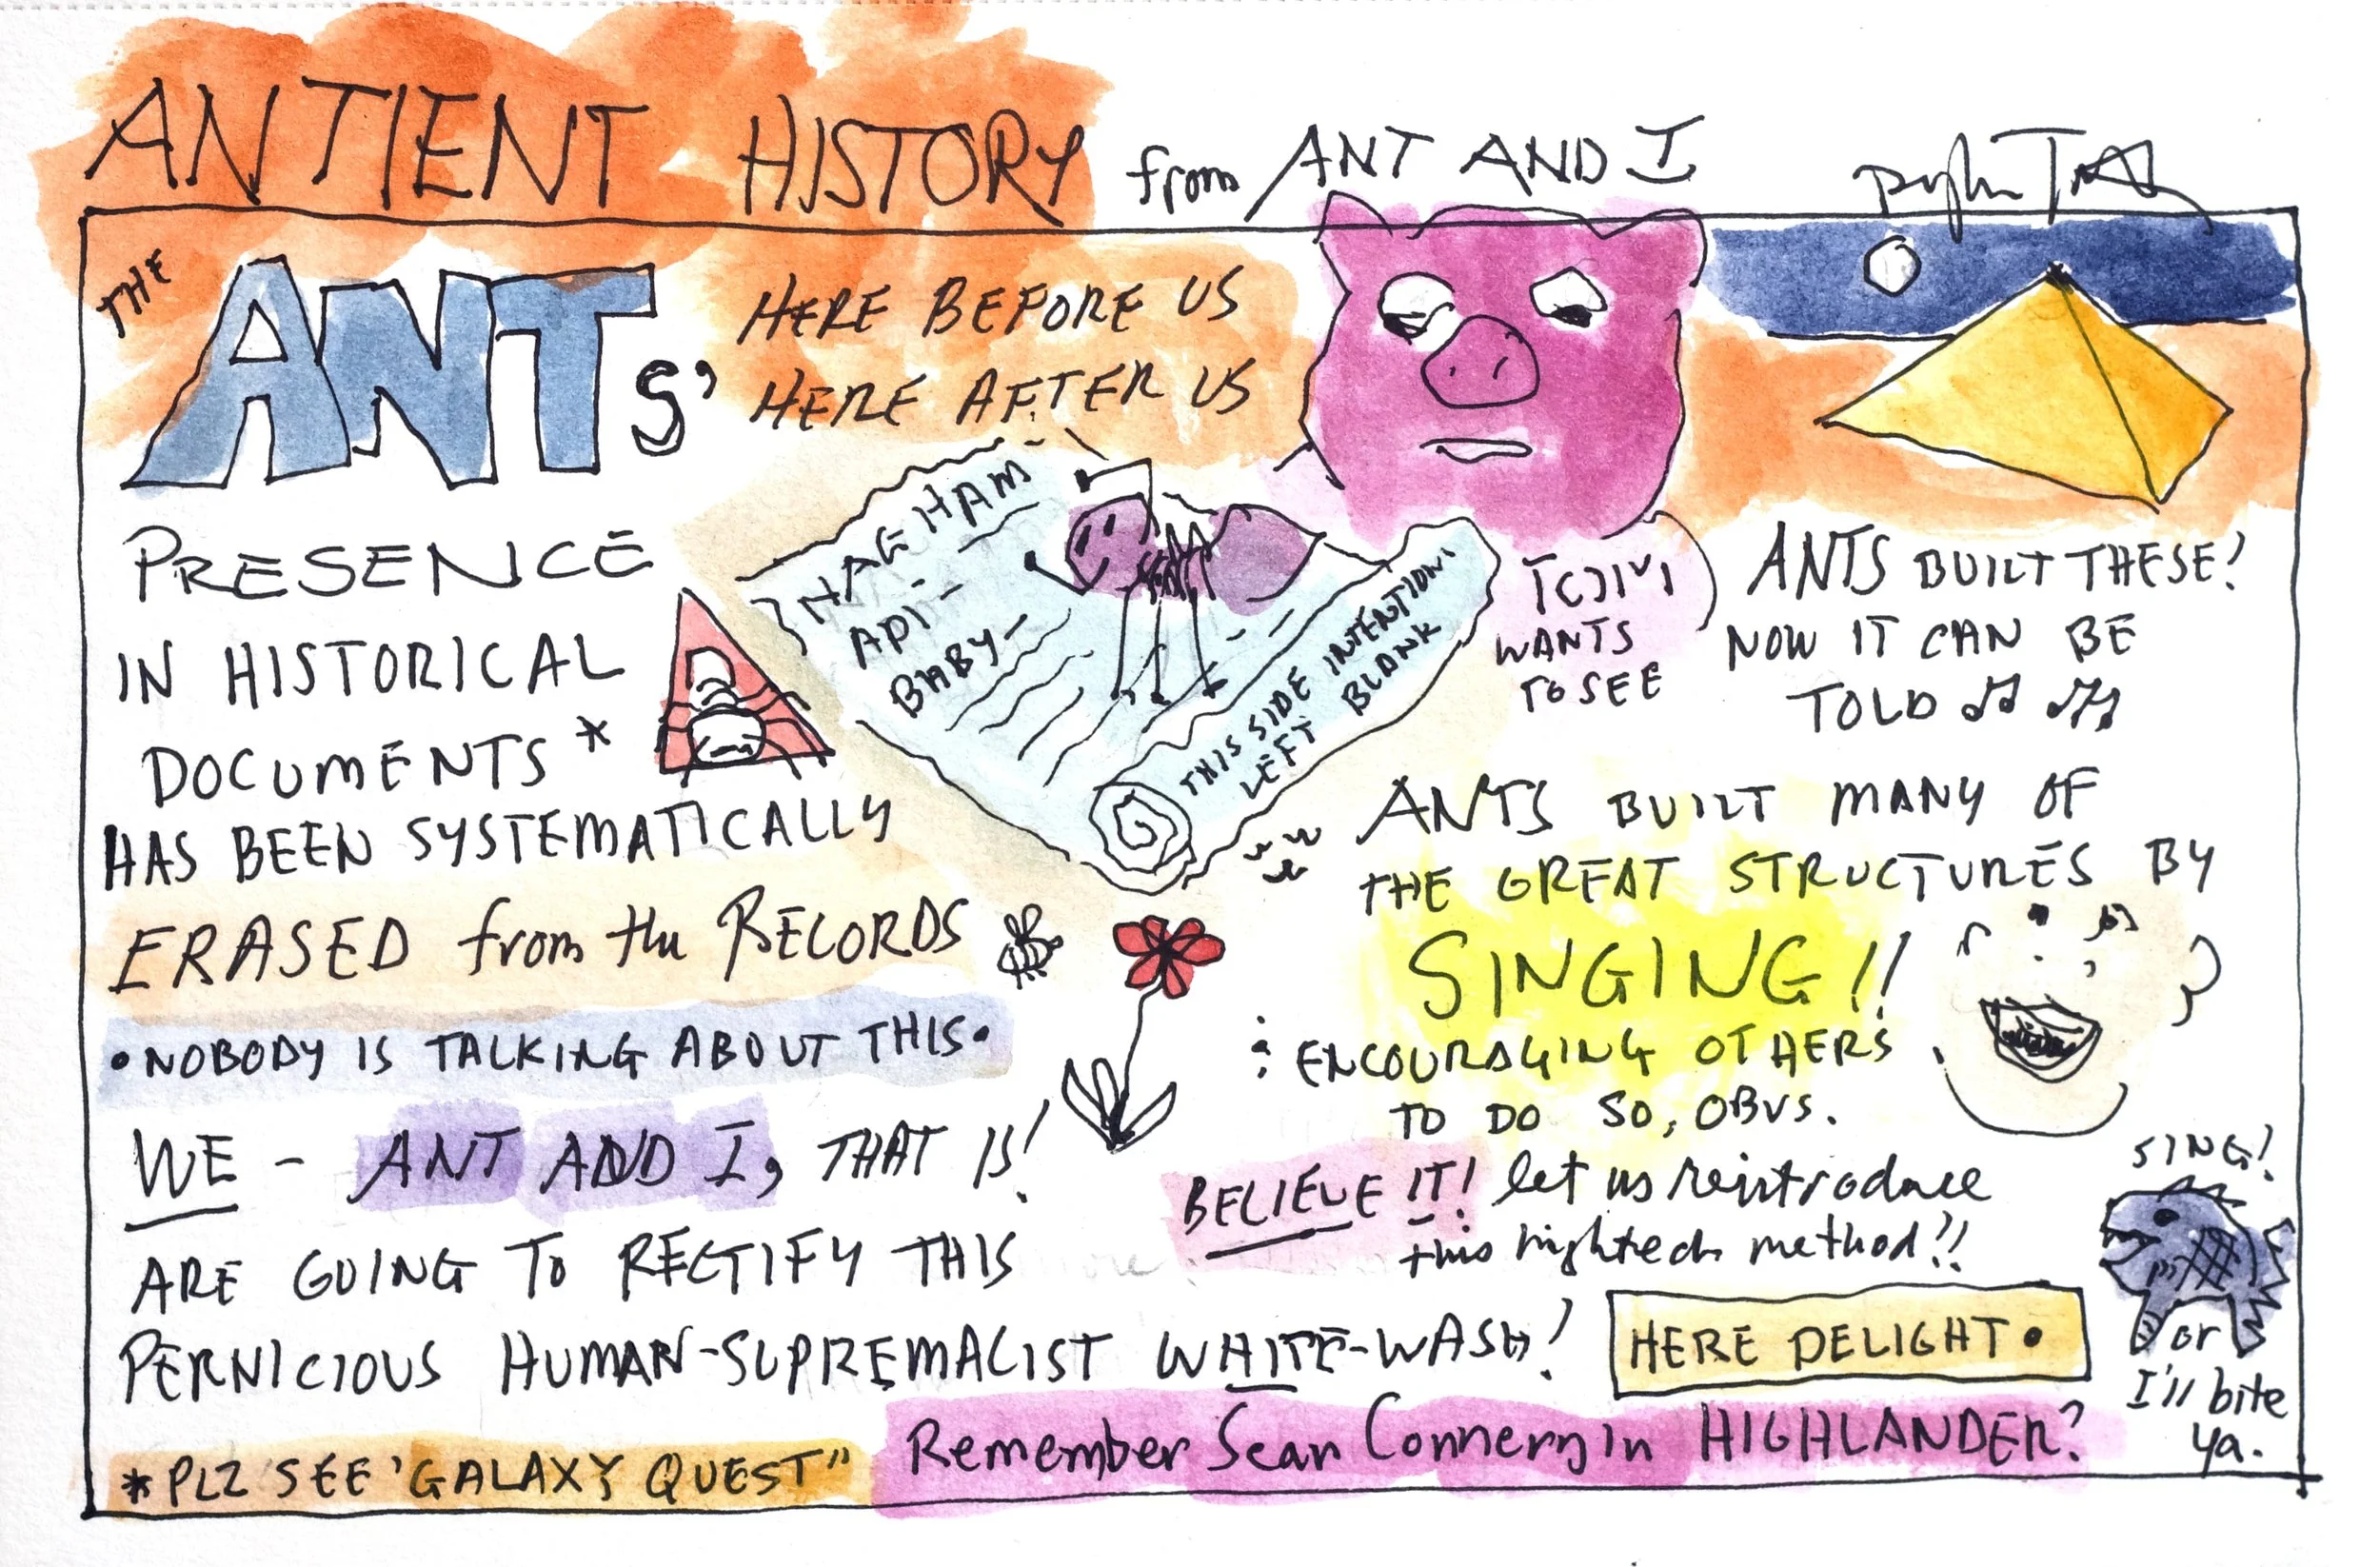 ANTIENT HISTORY from ANT AND I
THE
ANTS'
HERE BEFORE US
HERE AFTER US
PRESENCE
IN HISTORICAL
DOCUMENTS *
HAS BEEN SYSTEMATICALLY
ERASED from the RECORDS
•NOBODY IS TALKING ABOUT THIS•
WE - ANT AND I, THAT IS!
ARE GOING TO RECTIFY THIS
PERNICIOUS HUMAN-SUPREMACIST WHITE-WASH!
*PLZ SEE 'GALAXY QUEST"
Remember Sean Connery in HIGHLANDER?
HAGHAM
API-
BABY-
THIS SIDE INTENTION'
LEFT BLANK
WANTS
TO SEE
ANTS BUILT THESE!
NOW IT CAN BE
TOLD ♫ ♫
ANTS BUILT MANY OF
THE GREAT STRUCTURES BY
SINGING!!
: ENCOURAGING OTHERS
TO DO SO, OBVS.
BELIEVE IT! let us reintroduce
this hightech method!!
HERE DELIGHT•
SING!
or
I'll bite
ya.